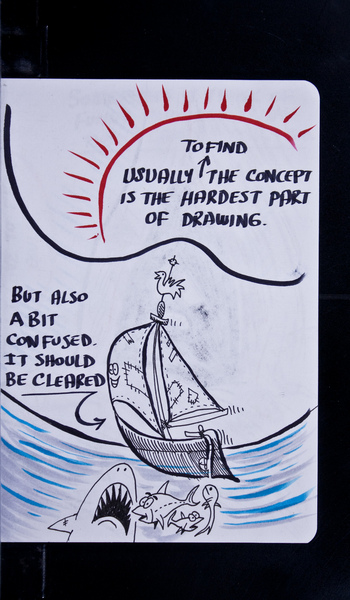 TO FIND
USUALLY ↑ THE CONCEPT
IS THE HARDEST PART
OF DRAWING.
BUT ALSO
A BIT
CONFUSED.
IT SHOULD
BE CLEARED